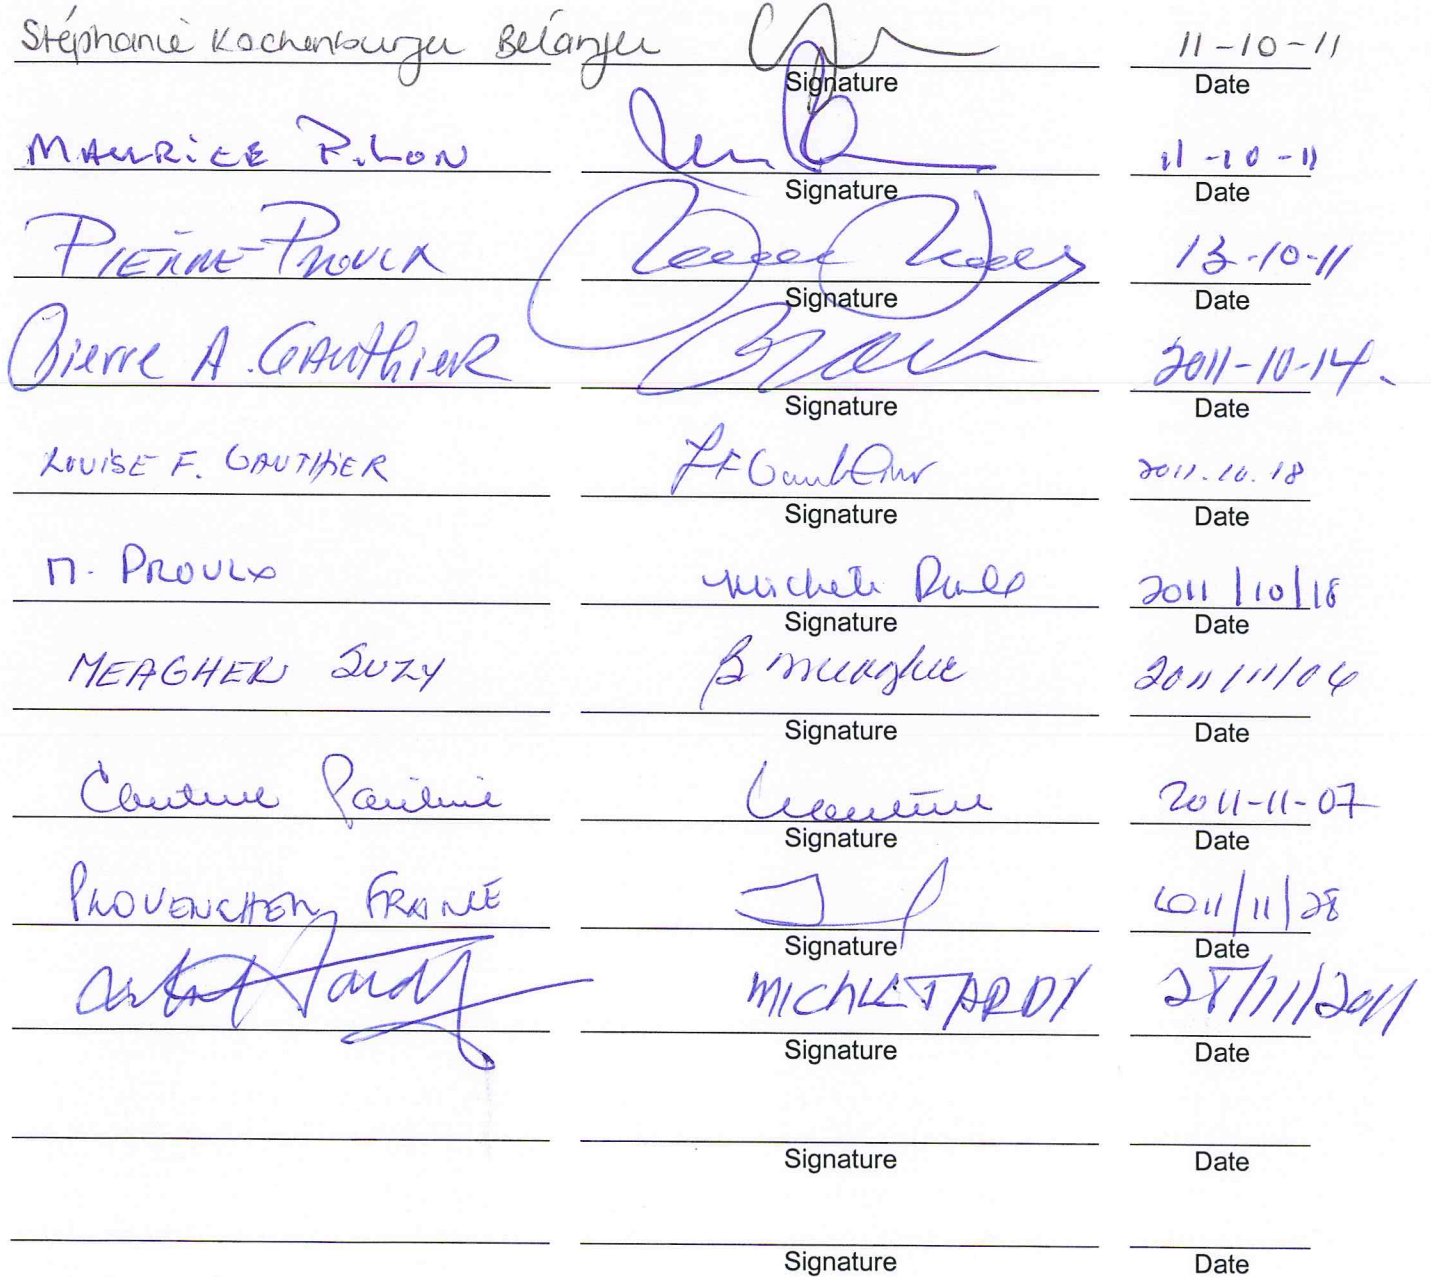 Stéphanie Kochenburger Bélanger 11-10-11
Signature Date
MAURICE PILON 11-10-11
Signature Date
PIERRE PROULX 13-10-11
Signature Date
Pierre A. GAUthier 2011-10-14.
Signature Date
LOUISE F. GAUTHIER LFGauthier 2011.10.18
Signature Date
M. PROULX Michele Proulx 2011/10/18
Signature Date
MEAGHER SUZY S Meagher 2011/11/04
Signature Date
Cantin Pauline Cantin 2011-11-07
Signature Date
PROVENCHER, FRANCE 2011/11/28
Signature Date
Tardy MICHLE TARDY 28/11/2011
Signature Date
Signature Date
Signature Date